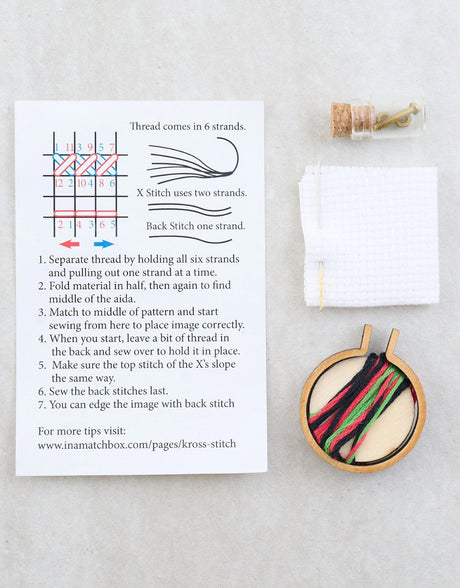 Thread comes in 6 strands.
1 11 3 9 5 7
12 2 10 4 8 6
X Stitch uses two strands.
2 1 4 3 6 5
Back Stitch one strand.
1. Separate thread by holding all six strands
and pulling out one strand at a time.
2. Fold material in half, then again to find
middle of the aida.
3. Match to middle of pattern and start
sewing from here to place image correctly.
4. When you start, leave a bit of thread in
the back and sew over to hold it in place.
5. Make sure the top stitch of the X's slope
the same way.
6. Sew the back stitches last.
7. You can edge the image with back stitch
For more tips visit:
www.inamatchbox.com/pages/kross-stitch